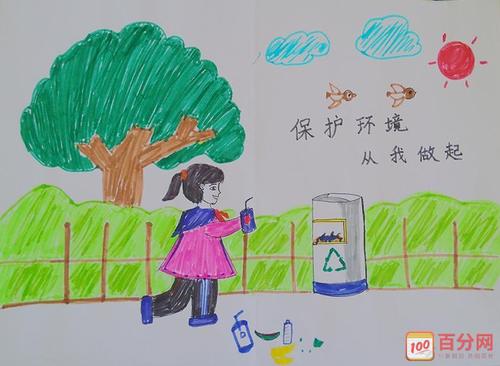 保护环境
从我做起
100
百分网